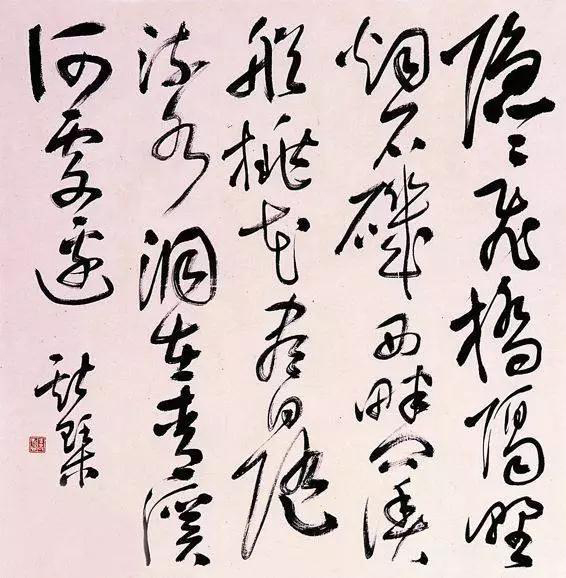 隱隱飛橋隔野
烟石磯西畔問漁
船桃花盡日隨
流水洞在青溪
何處邊